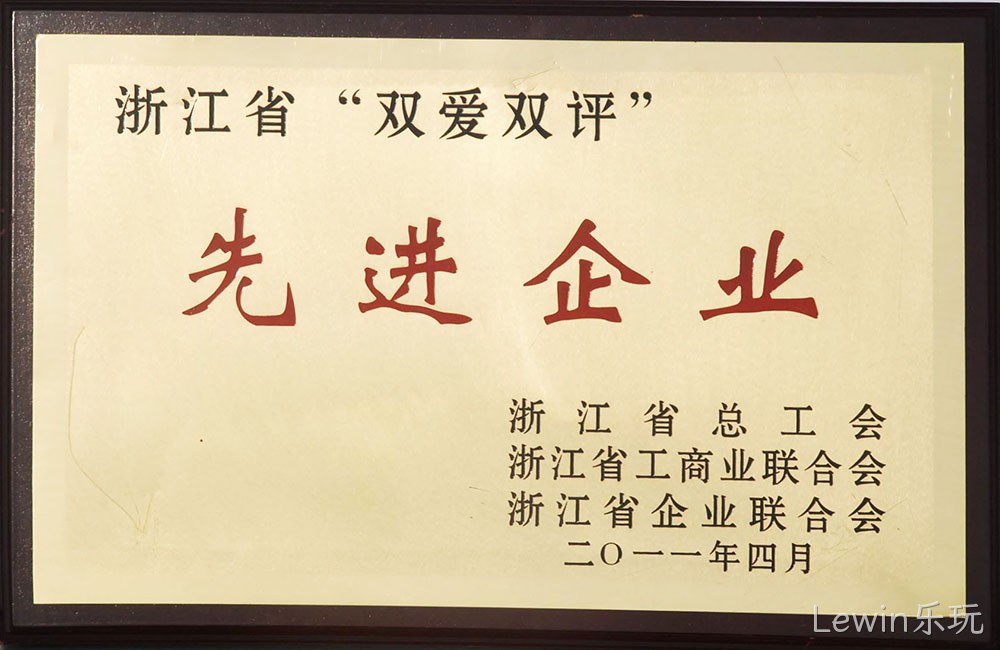 浙江省“双爱双评”
先进企业
浙江省总工会
浙江省工商业联合会
浙江省企业联合会
二〇一一年四月
Lewin乐玩